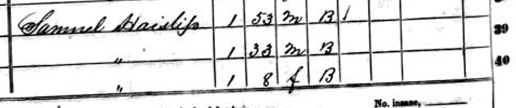 Samuel Haislip 1 53 m B 1
" 1 33 m B 39
" 1 8 f B 40
No. insane,